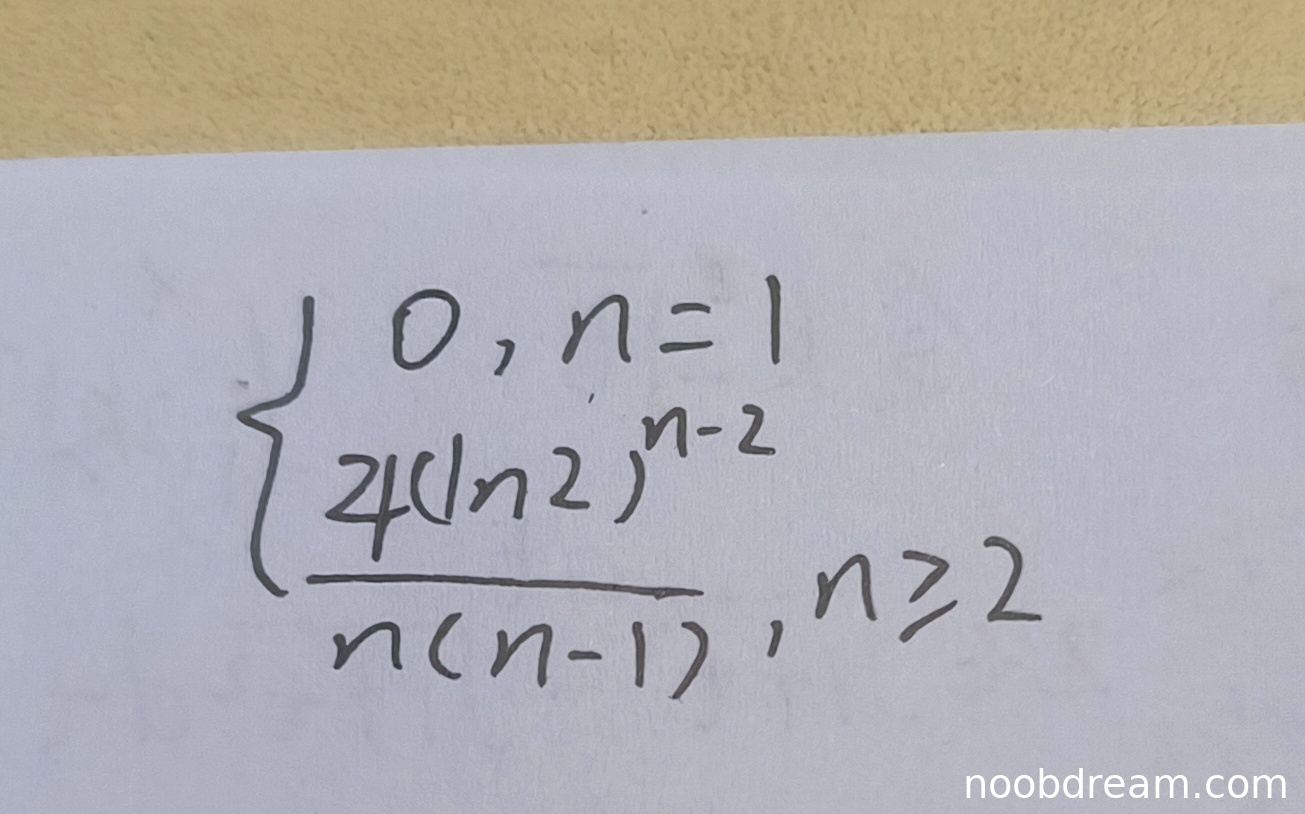 { 0, n = 1
4(ln2)^{n-2}
n(n-1) , n ≥ 2
noobdream.com